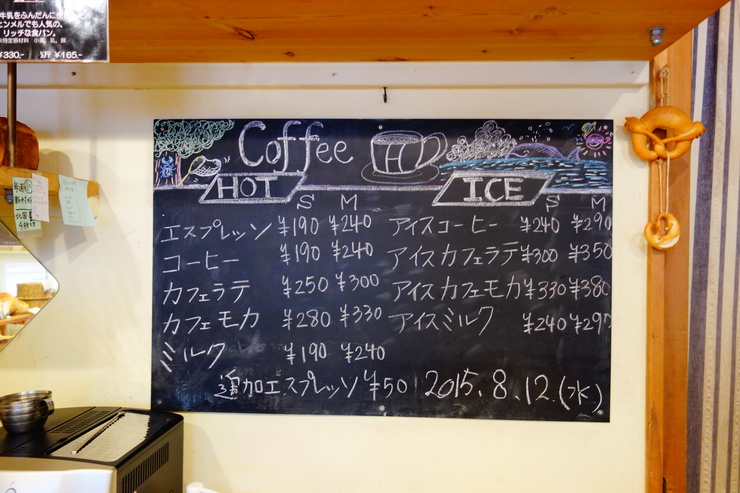 牛乳をふんだんに使
ヒンメルでも人気の。
リッチな食パン。
¥330.- 1/2斤 ¥165.-
Coffee H
HOT ICE
S M S M
エスプレッソ ¥190 ¥240 アイスコーヒー ¥240 ¥290
コーヒー ¥190 ¥240 アイスカフェラテ ¥300 ¥350
カフェラテ ¥250 ¥300 アイスカフェモカ ¥330 ¥380
カフェモカ ¥280 ¥330 アイスミルク ¥240 ¥290
ミルク ¥190 ¥240
追加エスプレッソ ¥50 2015.8.12.(水)